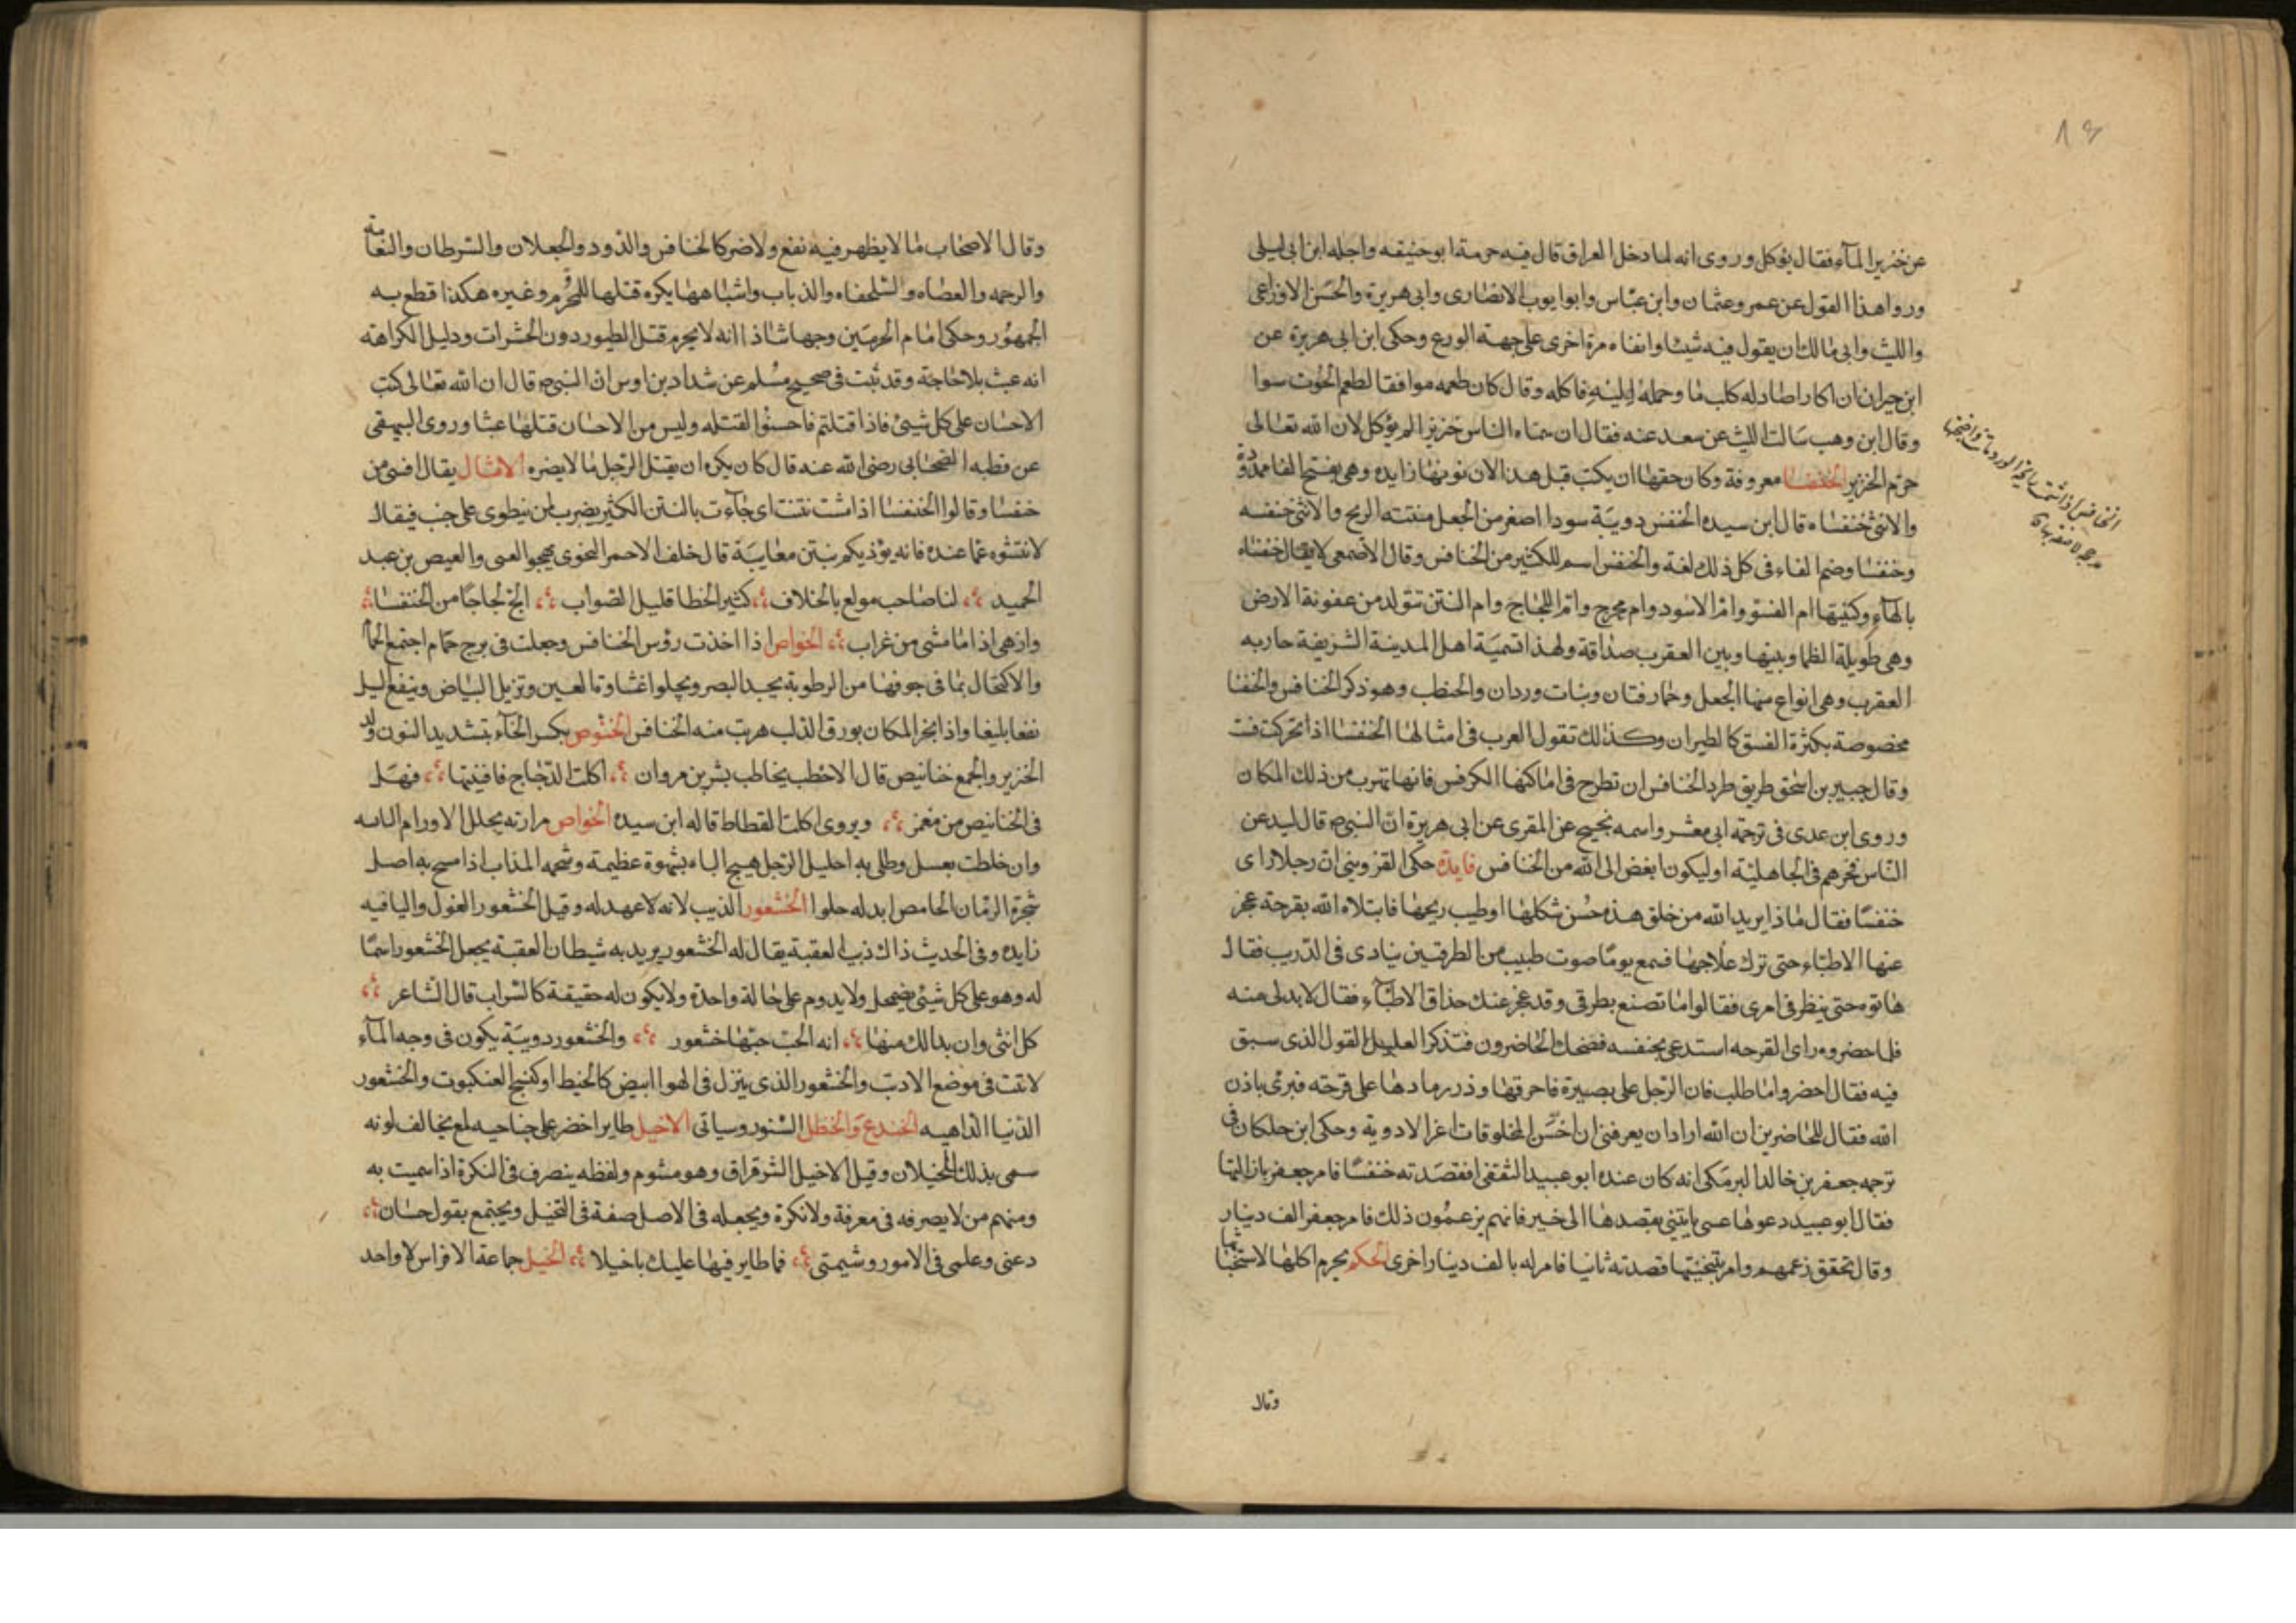 عن خنزير المآء فقال يؤكل وروى انه لما دخل العراق قال فيه حرمة ابو حنيفه واحله ابن ابى ليلى
ورواهذا القول عن عمر وعثمان وابن عباس وابو ايوب الانصارى وابى هريرة والحسن الاوزاعى
والليث وابى مالك ان يقول فيه شيئا وابقاه مرة اخرى على جهة الورع وحكى ابن ابى هريرة عن
ابن خيران ان اكارا صاد له كلب ما وحمله اليه فاكله وقال كان طعمه موافقا لطعم الحوت سوا
وقال ابن وهب سالت الليث عن سعد عنه فقال ان سماه الناس خنزيرا لم يؤكل لان الله تعالى
حرم الخنزير الخنفسا معروفة وكان حقها ان يكتب قبل هذا لان نونها زايده وهى بفتح الفا ممدودة
والانثى خنفساه قال ابن سيده الخنفس دويبة سودا اصغر من الجعل منتنة الريح والانثى خنفسه
وخنفسا وضم الفاء فى كل ذلك لغة والخنفس اسم للكثير من الخنافس وقال الاصمعى لا يقال خنفساه
بالهآء وكنيتها ام الفسو وام الاسود وام مخرج وام اللجاج وام النتن تتولد من عفونة الارض
وهى طويلة الظما وبينها وبين العقرب صداقة ولهذا تسمية اهل المدينة الشريفة جاريه
العقرب وهى انواع منها الجعل وحمار قتان وبنات وردان والحنطب وهو ذكر الخنافس والخنفسا
مخصوصة بكثرة الفسو كالطيران وكذلك تقول العرب فى امثالها الخنفسا اذا تحركت فست
وقال جبير بن اسحق طريق طرد الخنافس ان تطرح فى اماكنها الكرفس فانها تهرب من ذلك المكان
وروى ابن عدى فى ترجمة ابى معشر واسمه نجيح عن المقرى عن ابى هريرة ان النبى ص قال ليدعن
الناس فخرهم فى الجاهلية او ليكون ابغض الى الله من الخنافس فايدة حكى القزوينى ان رجلا راى
خنفسا فقال ماذا يريد الله من خلق هذه حسن شكلها او طيب ريحها فابتلاه الله بقرحة عجز
عنها الاطباء حتى ترك علاجها فسمع يوما صوت طبيب من الطرقيين ينادى فى الدرب فقال
هاتوه حتى ينظر فى امرى فقالوا ما تصنع بطرقى وقد عجز عنك حذاق الاطبآء فقال لا بد لى منه
فلما حضروه راى القرحه استدعى بخنفسه فضحك الحاضرون فتذكر العليل القول الذى سبق
فيه فقال احضروا ما طلب فان الرجل على بصيرة فاحرقها وذر رمادها على قرحته فبرئ باذن
الله فقال للحاضرين ان الله اراد ان يعرفنى ان اخس المخلوقات اعز الادوية وحكى ابن خلكان فى
ترجمه جعفر بن خالد البرمكى انه كان عنده ابو عبيد الثقفى فقصدته خنفسا فامر جعفر بازالتها
فقال ابو عبيد دعوها عسى ياتينى بقصدها الى خير فانهم يزعمون ذلك فامر جعفر الف دينار
وقال تحقق زعمهم وامر بتنحيتها قصدته ثانيا فامر له بالف دينار اخرى الحكم يحرم اكلها لاستخباثها
وقال
وقال الاصحاب ما لا يظهر فيه نفع ولا ضر كالخنافس والدود والجعلان والسرطان والنعامة
والرجمه والعضاه والسلحفاه والذباب واشباهها يكره قتلها للمحرم وغيره هكذا قطع به
الجمهور وحكى امام الحرمين وجها شاذا انه لا يحرم قتل الطيور دون الحشرات ودليل الكراهة
انه عبث بلا حاجة وقد ثبت فى صحيح مسلم عن شداد بن اوس ان النبى ص قال ان الله تعالى كتب
الاحسان على كل شيئ فاذا قتلتم فاحسنوا القتله وليس من الاحسان قتلها عبثا وروى البيهقى
عن قطبه الصحابى رضى الله عنه قال كان يكره ان يقتل الرجل ما لا يضره الامثال يقال افسى من
خنفسا وقالوا الخنفسا اذا مشت نتنت اى جاءت بالنتن الكثير يضرب لمن ينطوى على خبث فيقال
لا تفتشوه عما عنده فانه يؤذيكم بنتن معايبة قال خلف الاحمر النحوى يهجوا العسى والعيص بن عبد
الحميد لنا صاحب مولع بالخلاف كثير الخطا قليل الصواب الج لجاجا من الخنفسا
وازهى اذا ما مشى من غراب الخواص اذا اخذت رؤس الخنافس وجعلت فى برج حمام اجتمع الحما
والاكتحال بما فى جوفها من الرطوبة يحد البصر ويجلوا غشاوة العين وتزيل البياض وينفع ليل
نفعا بليغا واذا بخر المكان بورق الدلب هربت منه الخنافس الخنوص بكسر الخآء بتشديد النون ولد
الخنزير والجمع خنانيص قال الاخطب يخاطب بشر بن مروان اكلت الدجاج فافنيتها فهل
فى الخنانيص من مغمز ويروى اكلت القطاط قاله ابن سيده الخواص مرارته يحلل الاورام
وان خلطت بعسل وطلى به احليل الرجل هيج الباه بشهوة عظيمة وشحمه المذاب اذا مسح به اصل
شجرة الرمان الحامص ابدله حلوا الخنثعور الذيب لانه لا عهد له وقيل الخنثعور الغول والياقيه
زايده وفى الحديث ذاك ذيب العقبة يقال له الخنثعور يريد به شيطان العقبة يجعل الخنثعور اسما
له وهو على كل شيئ يضمحل ولا يدوم على حالة واحدة ولا يكون له حقيقة كالسراب قال الشاعر
كل انثى وان بدالك منها اية الحب حبها خيثعور والخنثعور دويبة يكون فى وجه المآء
لا تثبت فى موضع الا دبت والخنثعور الذى ينزل فى الهوا ابيض كالخيط او كنسج العنكبوت والخنثعور
الدنيا الداهيه الخيدع والخيطل السنور وسياتى الاخيل طاير اخضر على جناحيه لمع يخالف لونه
سمى بذلك للخيلان وقيل الاخيل الشرقراق وهو مشوم ولفظه ينصرف فى النكرة اذا سميت به
ومنهم من لا يصرفه فى معرفة ولا نكرة ويجعله فى الاصل صفة فى التخيل ويحتج بقول حسان
دعنى وعلمى فى الامور وشيمتى فما طاير فيها عليك باخيلا الخيل جماعة الافراس لا واحد